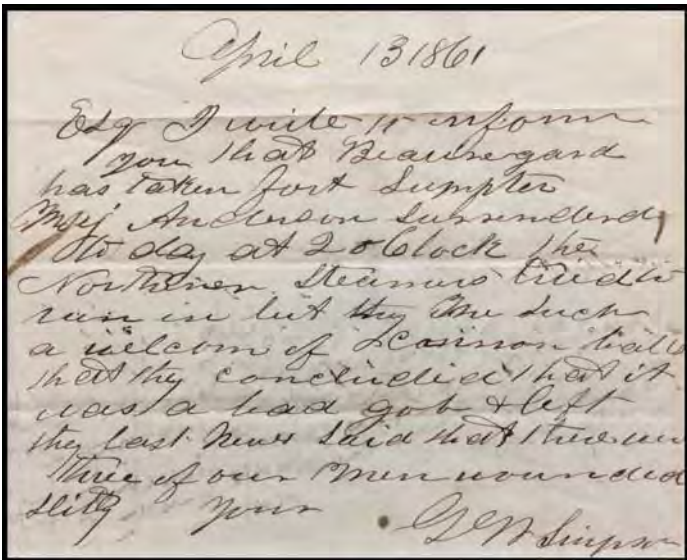 April 13 1861
Esq I write to inform
you that Beauregard
has taken fort Sumpter
Maj Anderson Surrenderd
to day at 2 o Clock the
Northiner Steamers tried to
run in but thy such
a welcom of cannon balls
that thy concludid that it
was a bad gob & left
the last News said that there
three of our men wounded
slitly your
G W Simpson